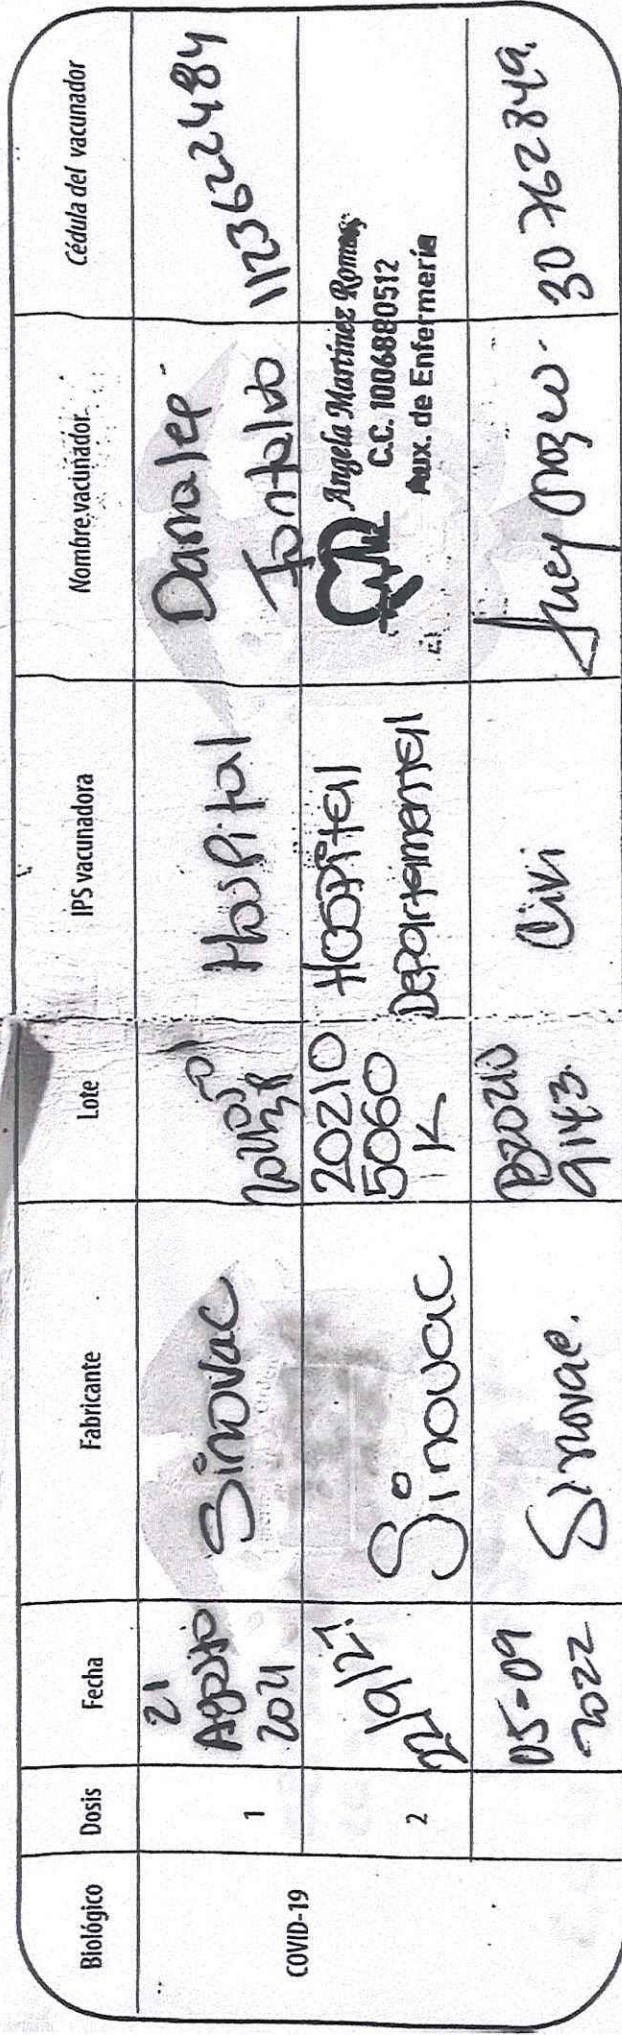 Biológico Dosis Fecha Fabricante Lote IPS vacunadora Nombre vacunador Cédula del vacunador
COVID-19
1
21
Agosto
2021
Sinovac
Hospital
Damaley
Fontalvo
1123622484
2
22/9/21.
Sinovac
20210
5060
K
Hospital
Departamental
Angela Martínez Romos
C.C. 1006880512
Aux. de Enfermería
05-09
-2022
Sinovac.
B20210
9143.
30762849.